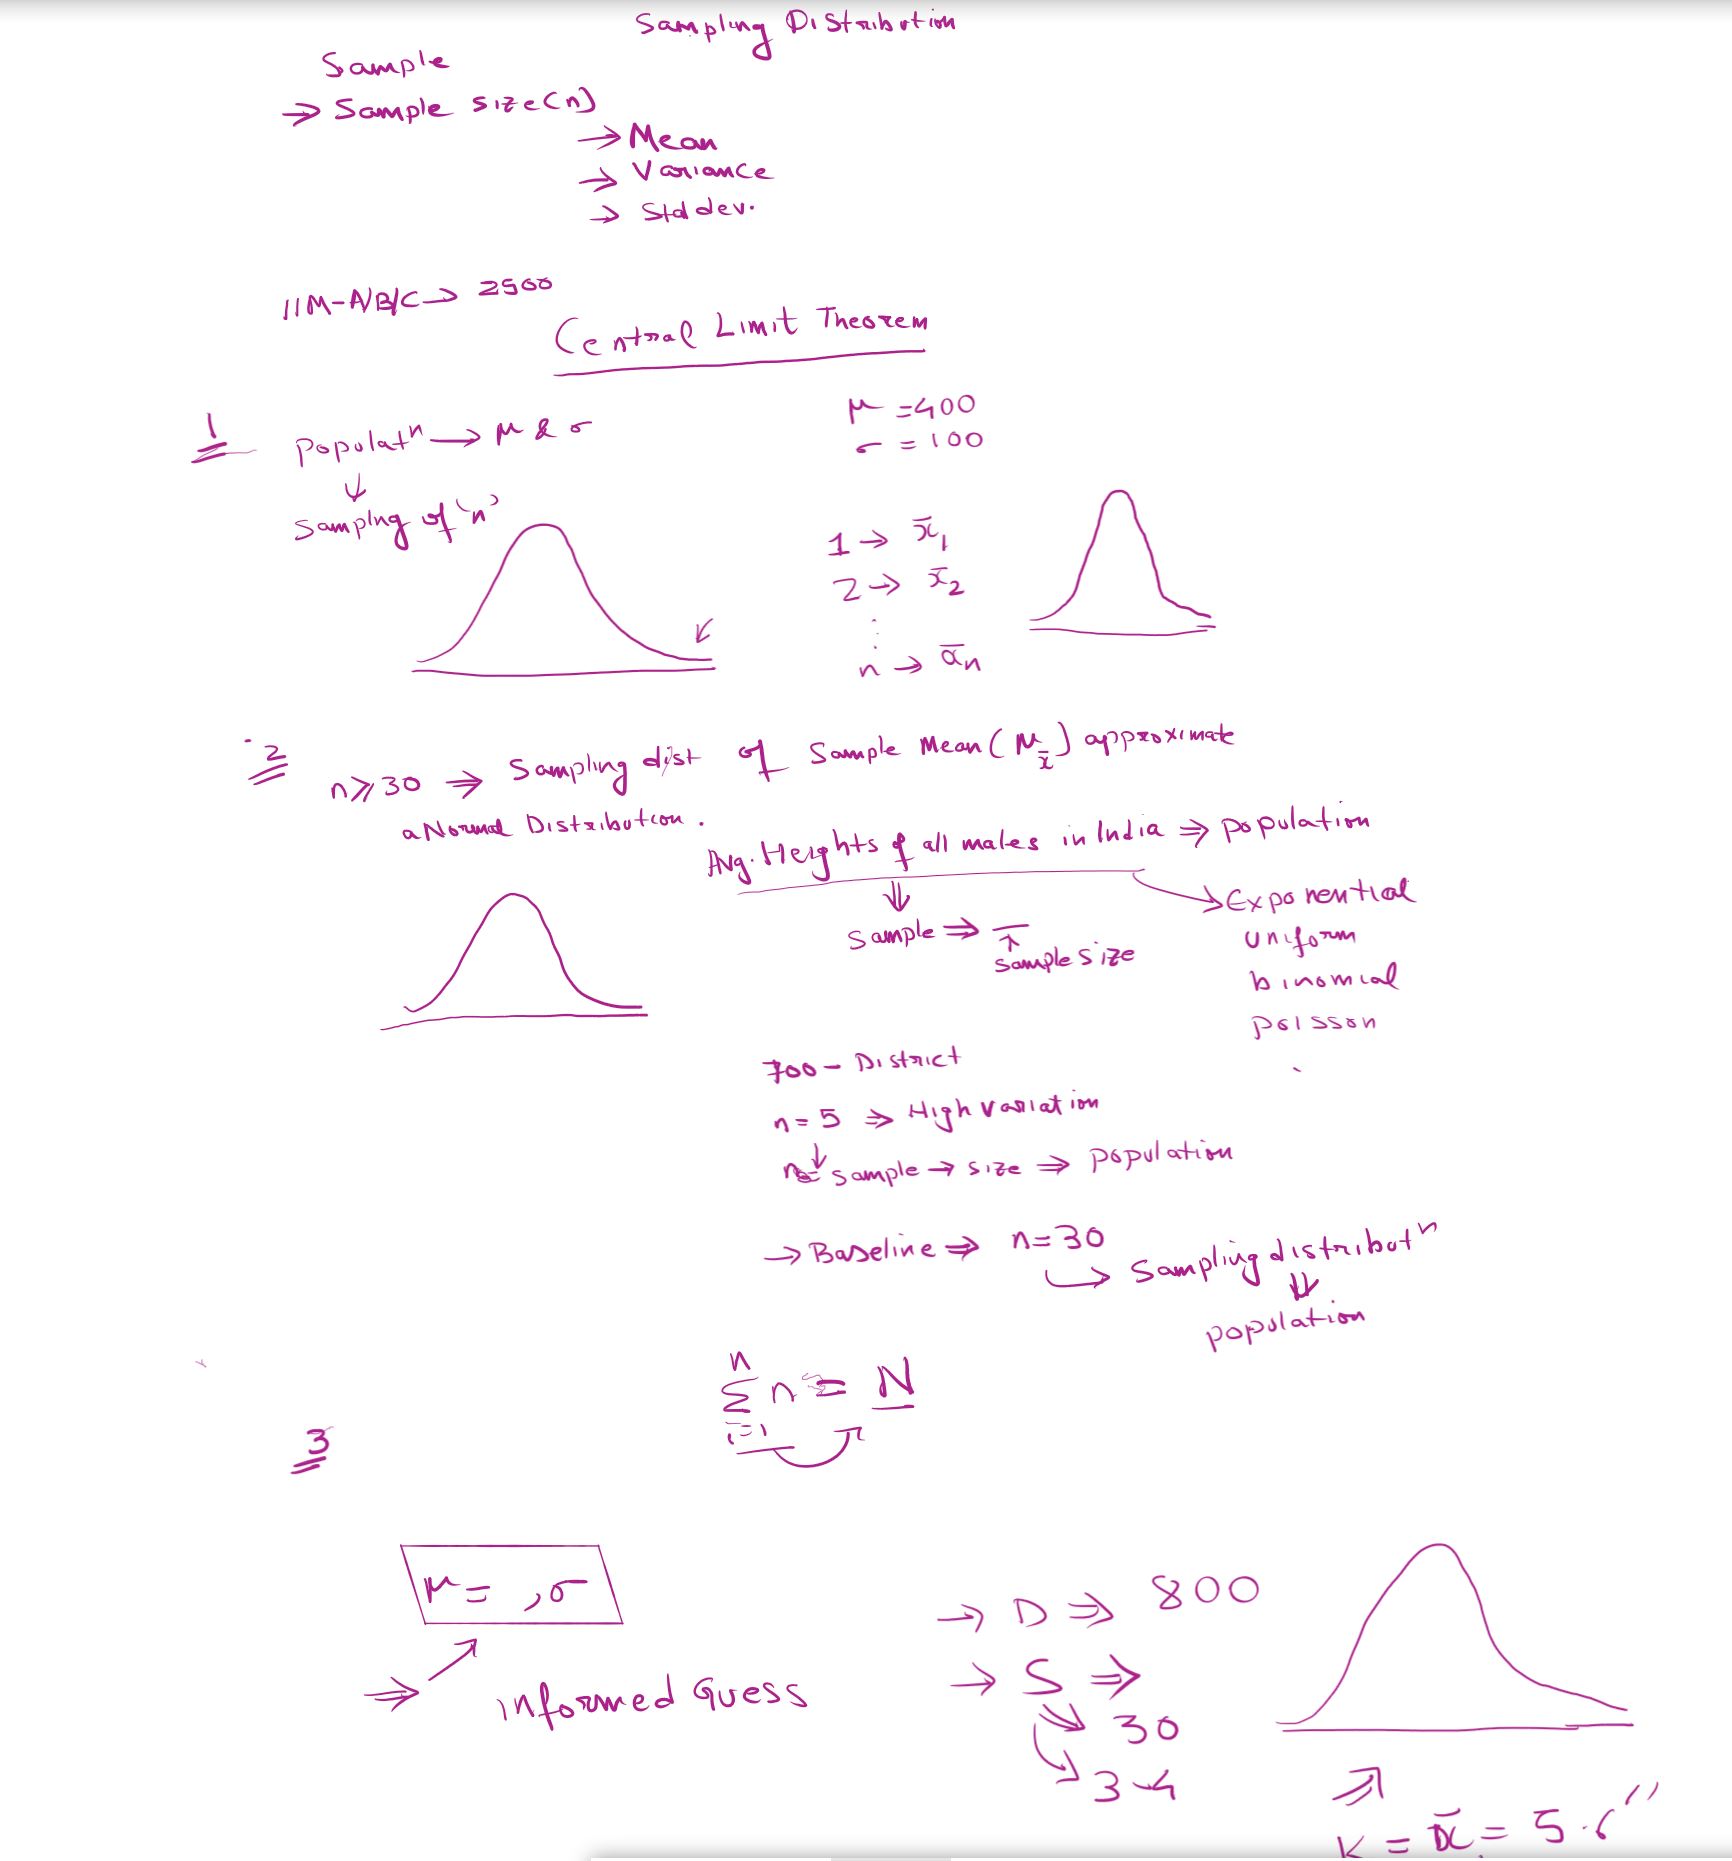 Sampling Distribution
Sample
→ Sample size(n)
→ Mean
→ Variance
→ Std dev.
IIM-A/B/C → 2500
Central Limit Theorem
1
Populatⁿ → μ & σ
μ = 400
σ = 100
↓
Samplng of 'n'
1 → x̄₁
2 → x̄₂
⋮
n → x̄n
2
n ≥ 30 ⇒ Sampling dist of Sample Mean (μx̄) approximate
a Normal Distribution.
Avg. Heights of all males in India ⇒ population
⇓
Sample ⇒
↑
Sample size
→ Exponential
uniform
binomial
poisson
700 - District
n = 5 ⇒ High variation
↓
Sample → size ⇒ population
→ Baseline ⇒ n = 30
→ Sampling distributⁿ
⇓
population
n
Σ n = N
i=1
3
μ = , σ
⇒ informed Guess
→ D ⇒ 800
→ S ⇒
30
3-4
= x̄ = 5.6"